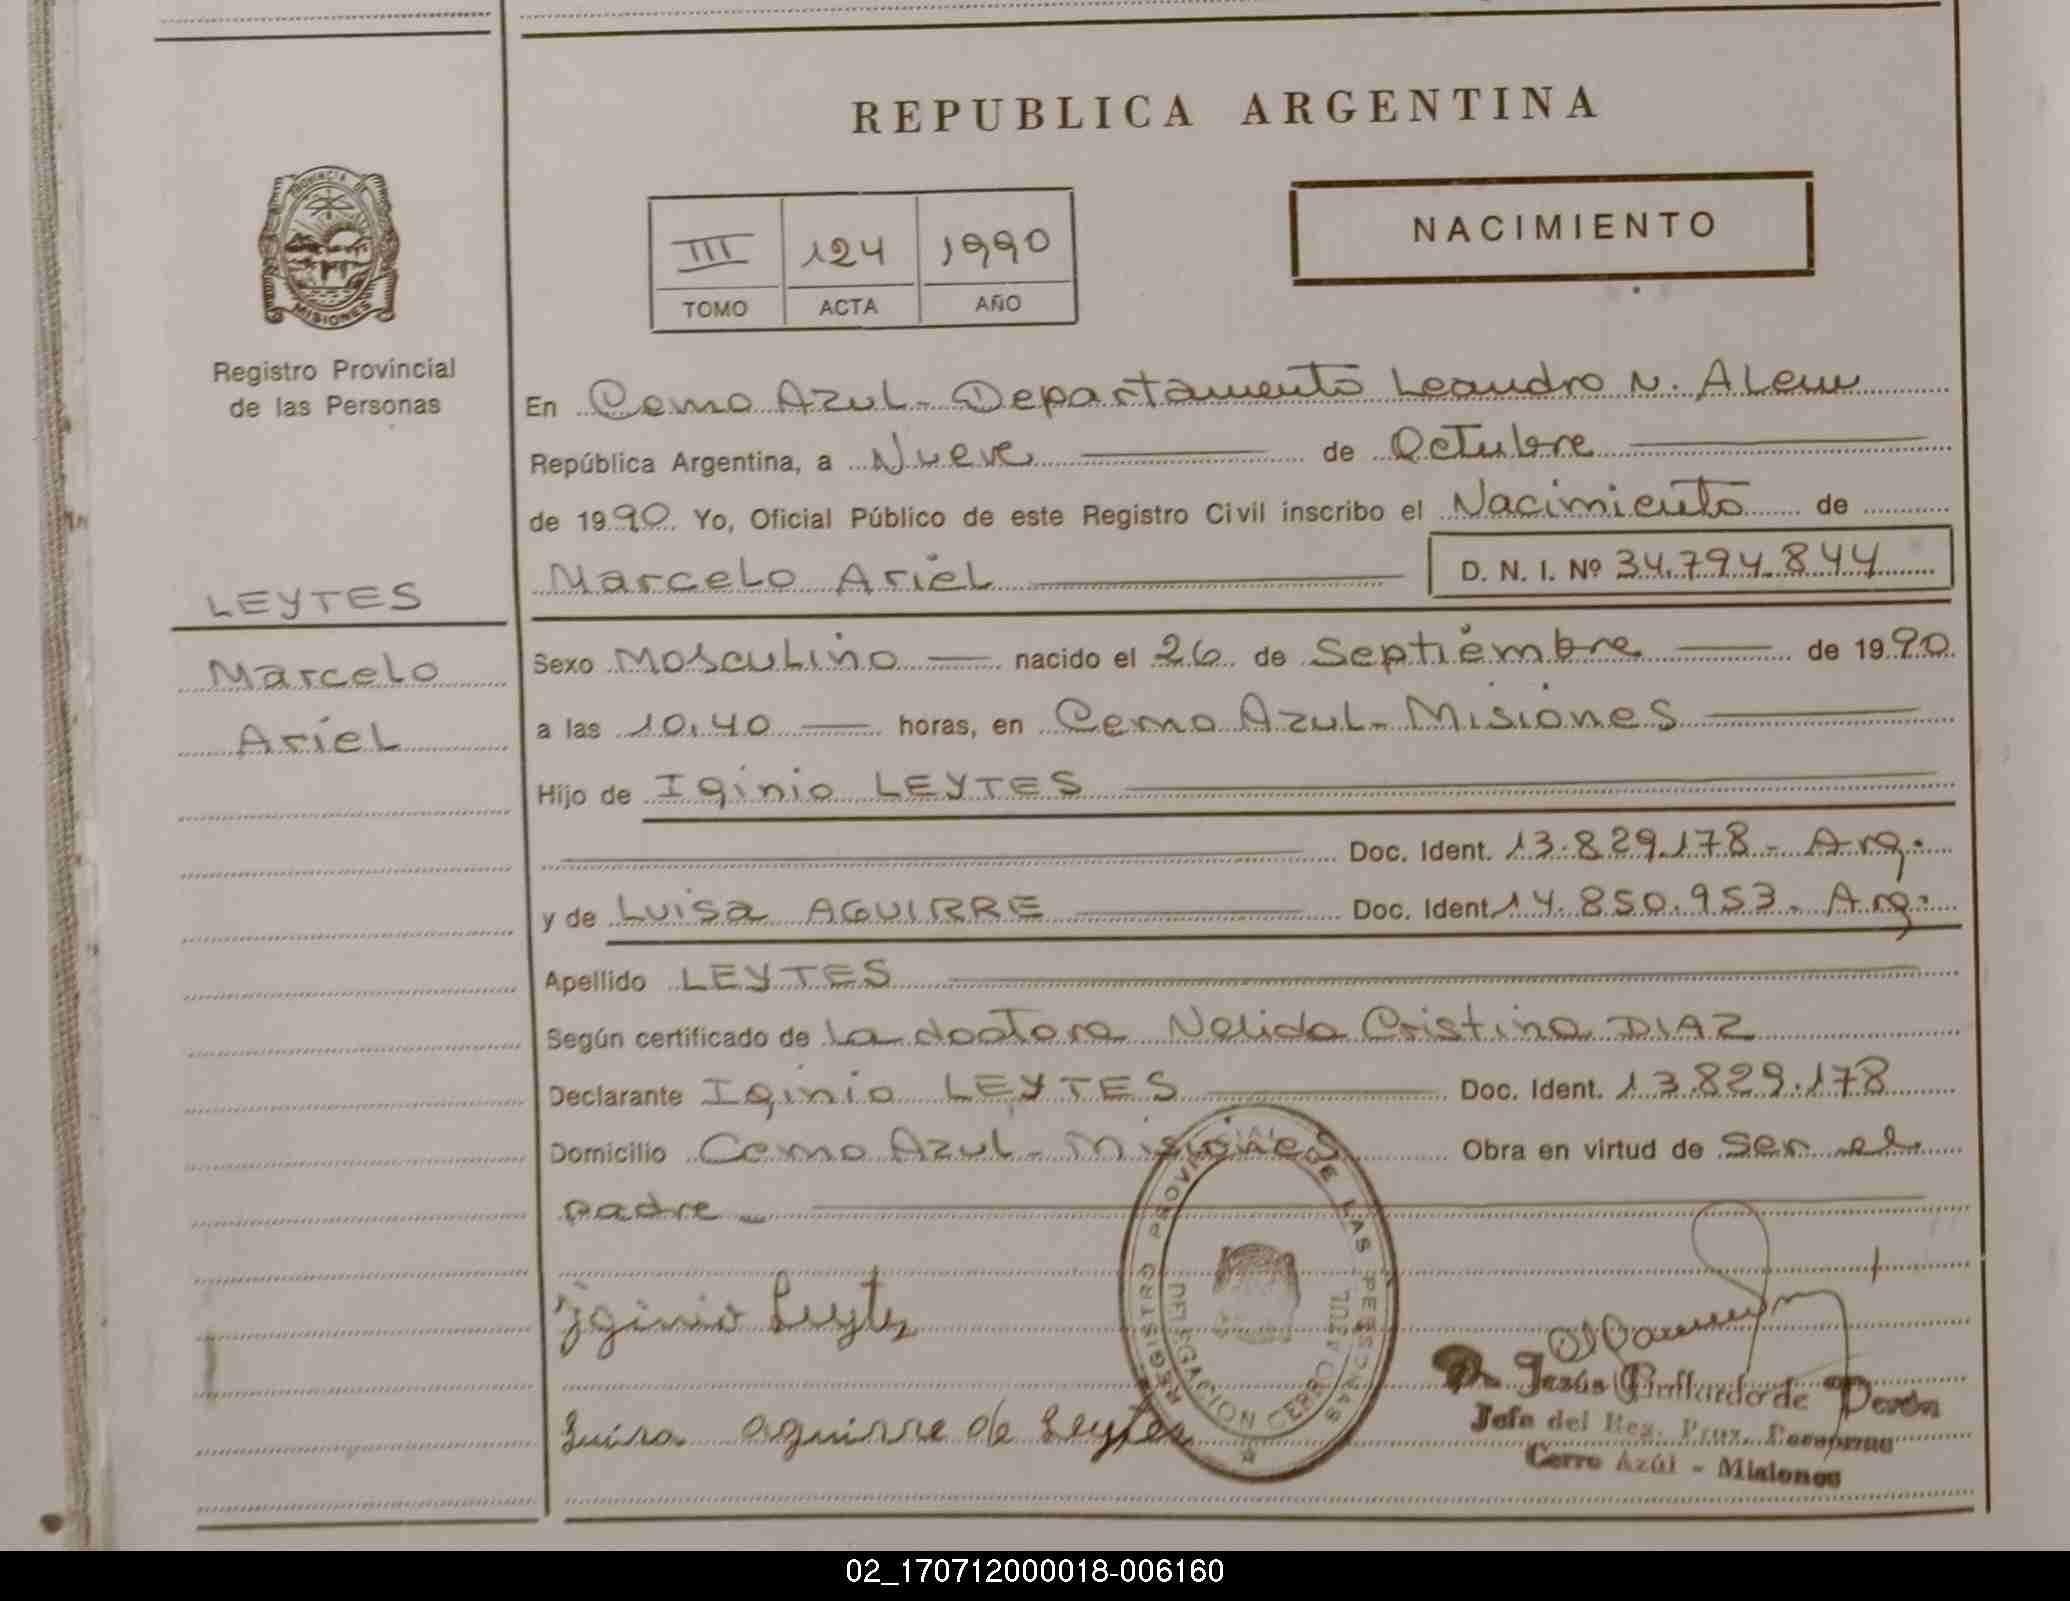 REPUBLICA ARGENTINA
PROVINCIA DE
MISIONES
Registro Provincial
de las Personas
III 124 1990
TOMO ACTA AÑO
NACIMIENTO
LEYTES
Marcelo
Ariel
En Cerro Azul - Departamento Leandro N. Alem
República Argentina, a Nueve de Octubre
de 1990. Yo, Oficial Público de este Registro Civil inscribo el Nacimiento de
Marcelo Ariel D. N. I. Nº 34.794.844
Sexo Masculino nacido el 26 de Septiembre de 1990.
a las 10,40 horas, en Cerro Azul - Misiones
Hijo de Iginio LEYTES
Doc. Ident. 13.829.178 - Arg.
y de Luisa AGUIRRE Doc. Ident. 14.850.953 - Arg.
Apellido LEYTES
Según certificado de la doctora Nelida Cristina DIAZ
Declarante Iginio LEYTES Doc. Ident. 13.829.178
Domicilio Cerro Azul - Misiones Obra en virtud de ser el
padre -
Iginio Leytes
Luisa aguirre de Leytes
REGISTRO PROVINCIAL DE LAS PERSONAS
DELEGACION CERRO AZUL
Jesús Gallardo de Perón
Jefa del Reg. Prov. Personas
Cerro Azúl - Misiones
02_170712000018-006160